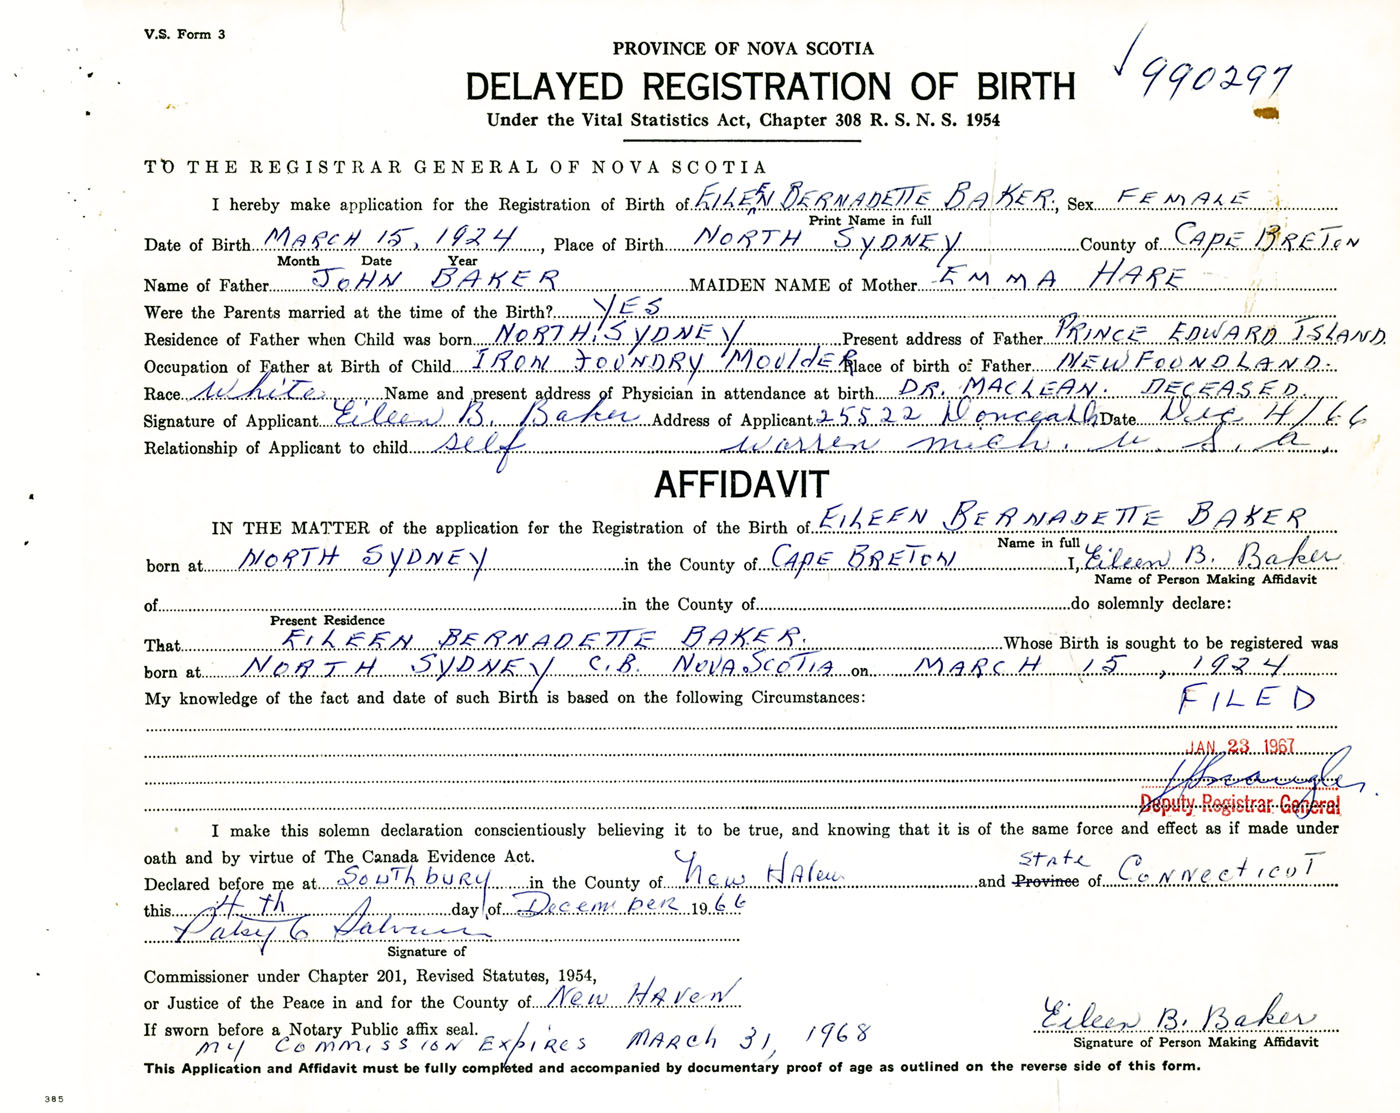 V.S. Form 3
PROVINCE OF NOVA SCOTIA
DELAYED REGISTRATION OF BIRTH
990297
Under the Vital Statistics Act, Chapter 308 R. S. N. S. 1954
TO THE REGISTRAR GENERAL OF NOVA SCOTIA
I hereby make application for the Registration of Birth of EILEEN BERNADETTE BAKER, Sex FEMALE
Print Name in full
Date of Birth MARCH 15, 1924, Place of Birth NORTH SYDNEY County of CAPE BRETON
Month Date Year
Name of Father JOHN BAKER MAIDEN NAME of Mother EMMA HARE
Were the Parents married at the time of the Birth? YES
Residence of Father when Child was born NORTH SYDNEY Present address of Father PRINCE EDWARD ISLAND.
Occupation of Father at Birth of Child IRON FOUNDRY MOULDER Place of birth of Father NEWFOUNDLAND.
Race White Name and present address of Physician in attendance at birth DR. MACLEAN. DECEASED.
Signature of Applicant Eileen B. Baker Address of Applicant 25522 Date Dec 4/66
Relationship of Applicant to child self warren mich. U. S. A.
AFFIDAVIT
IN THE MATTER of the application for the Registration of the Birth of EILEEN BERNADETTE BAKER
Name in full
born at NORTH SYDNEY in the County of CAPE BRETON I, Eileen B. Baker
Name of Person Making Affidavit
of in the County of do solemnly declare:
Present Residence
That EILEEN BERNADETTE BAKER. Whose Birth is sought to be registered was
born at NORTH SYDNEY C.B. NOVA SCOTIA on MARCH 15, 1924
My knowledge of the fact and date of such Birth is based on the following Circumstances:
FILED
JAN 23 1967
Deputy Registrar General
I make this solemn declaration conscientiously believing it to be true, and knowing that it is of the same force and effect as if made under
oath and by virtue of The Canada Evidence Act.
Declared before me at SOUTHBURY in the County of New HAven and Province State of CONNECTICUT
this 4th day of DECEMBER 1966
Signature of
Commissioner under Chapter 201, Revised Statutes, 1954,
or Justice of the Peace in and for the County of NEW HAVEN
If sworn before a Notary Public affix seal.
MY COMMISSION EXPIRES MARCH 31, 1968
Eileen B. Baker
Signature of Person Making Affidavit
This Application and Affidavit must be fully completed and accompanied by documentary proof of age as outlined on the reverse side of this form.
385